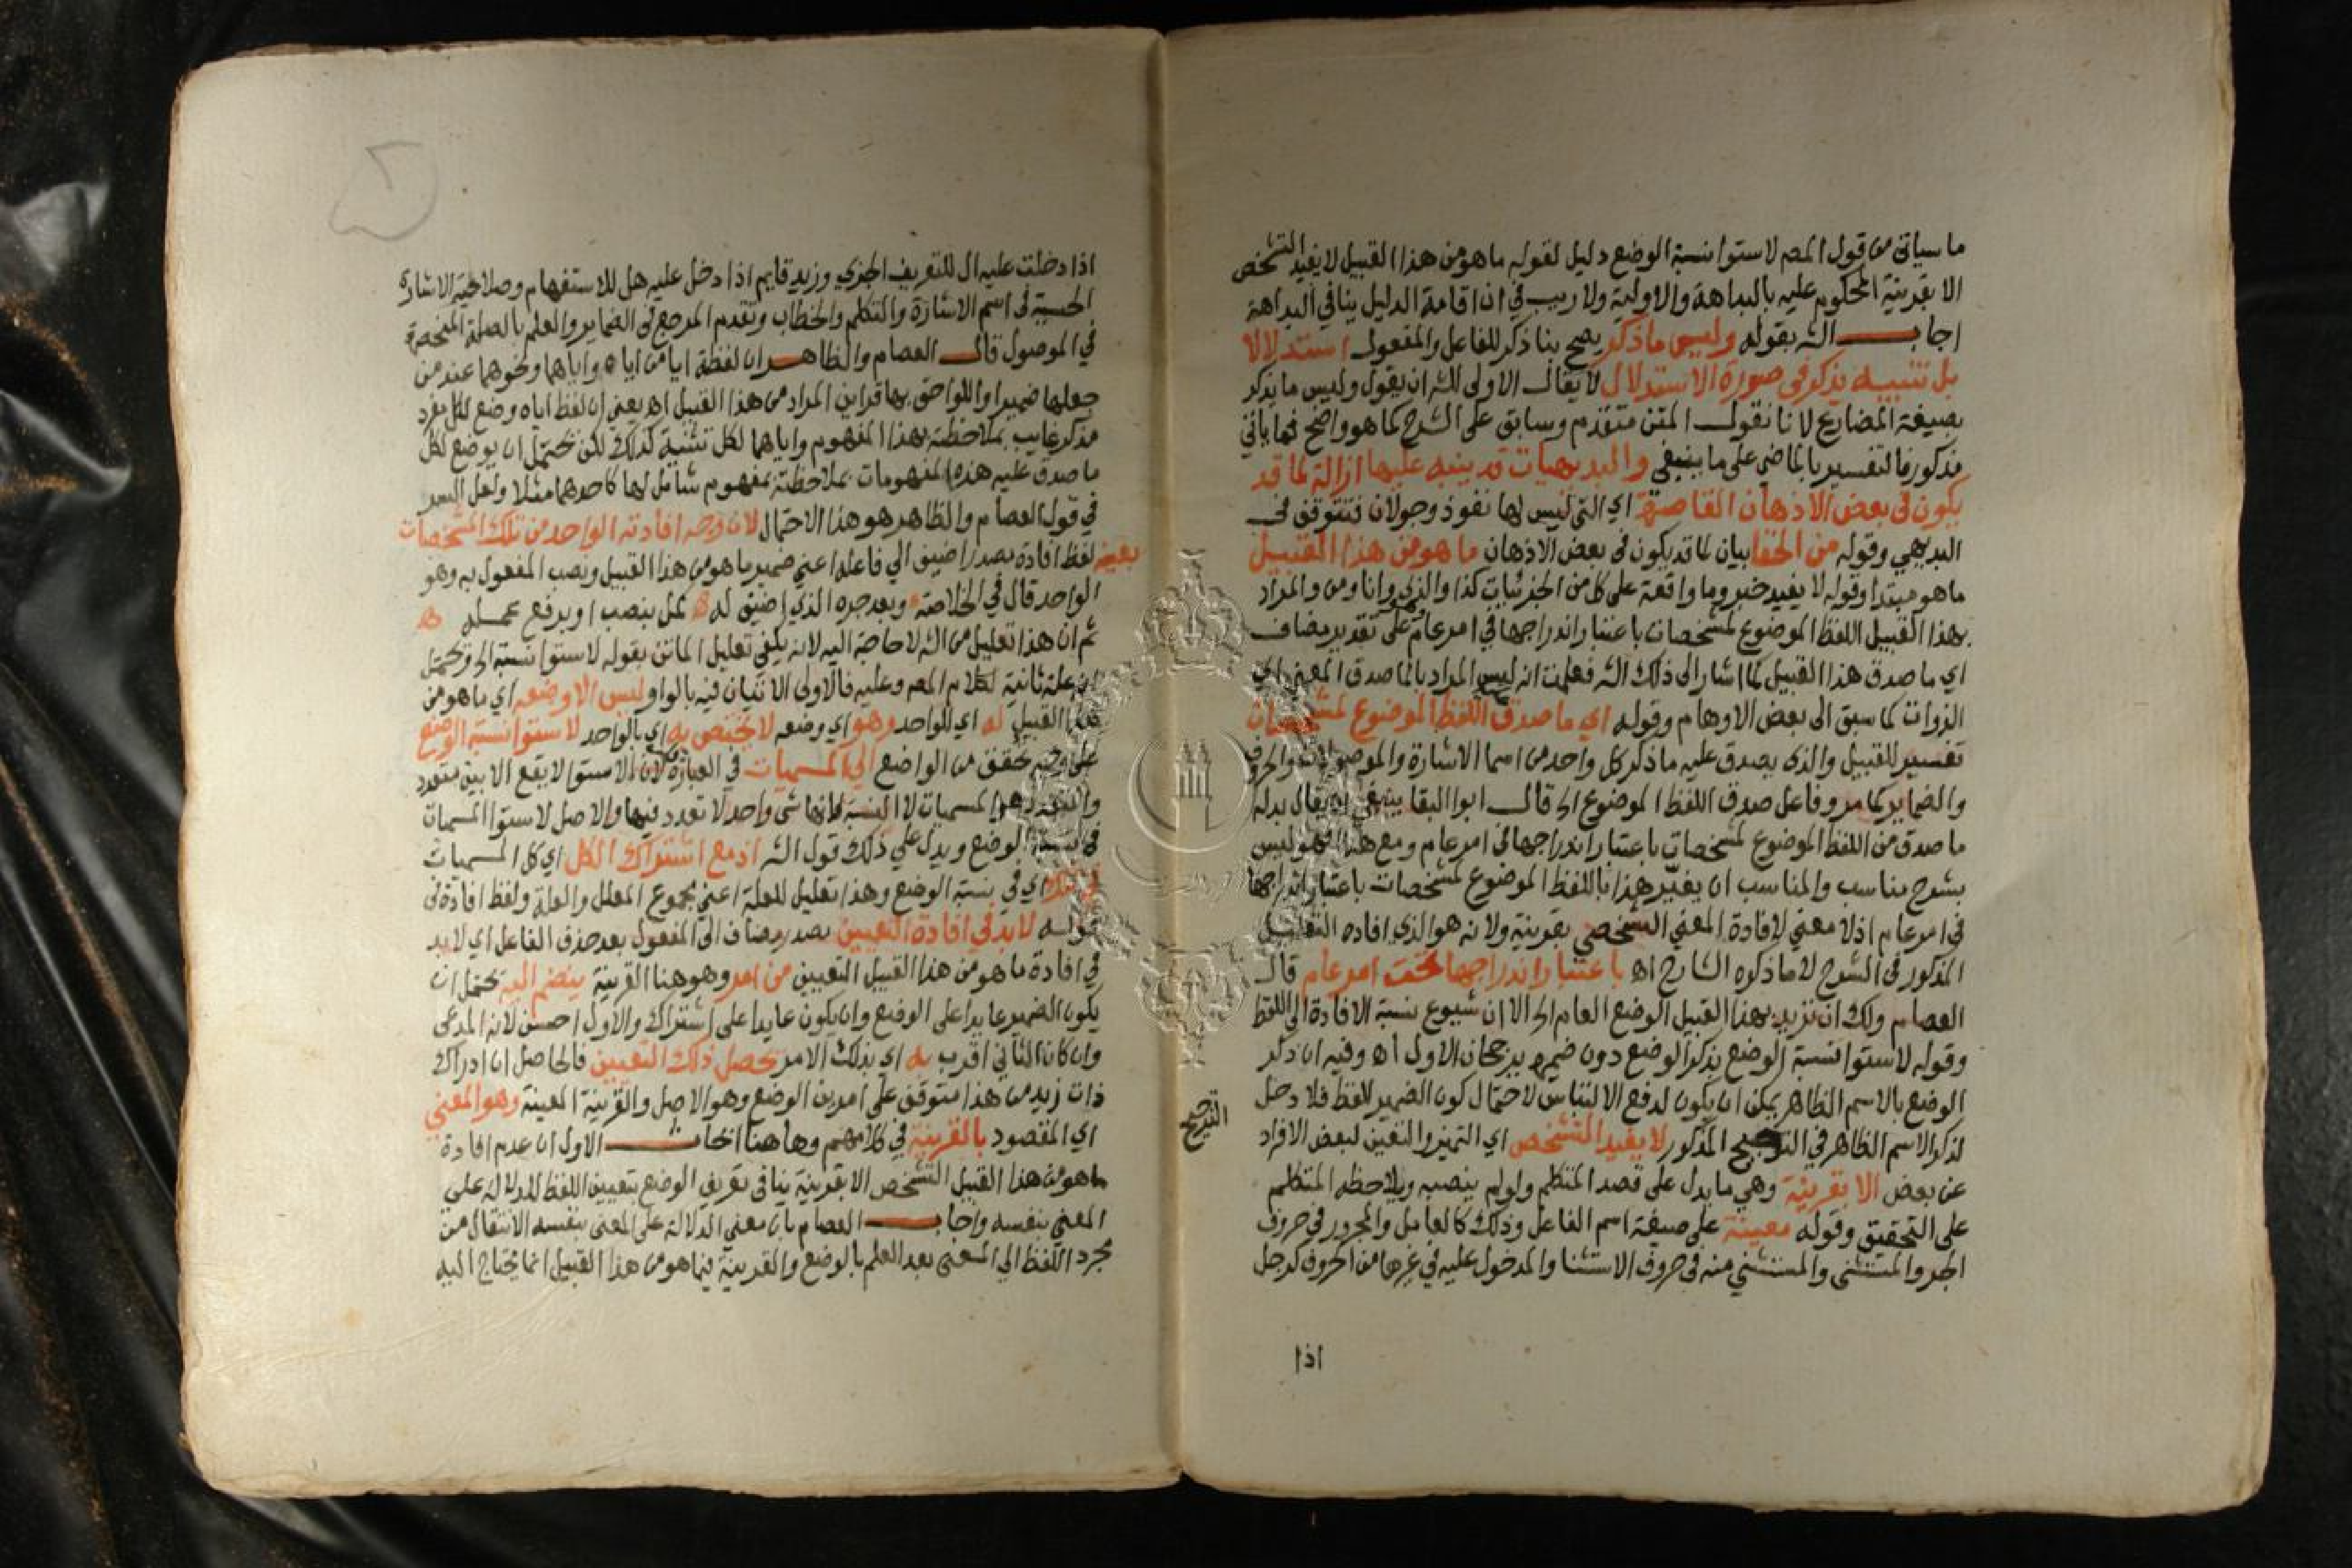 ما سياتى من قول المص لاستوا نسبة الوضع دليل لقوله ما هو من هذا القبيل لا يفيد التشخص
الا بقرينة المحكوم عليه بالبداهة والاولية ولا ريب في ان اقامة الدليل ينافي البداهة
اجاب الش بقوله وليس ما ذكر يصح بنا ذكر للفاعل والمفعول استدلالا
بل تنبيه يذكر في صورة الاستدلال لا يقال الاولى للش ان يقول وليس ما يذكر
بصيغة المضارع لانا نقول المتن متقدم وسابق على الشرح كما هو واضح فما ياتي
مذكور فالتفسير بالماضي على ما ينبغي والبديهيات قد ينبه عليها ازالة لما قد
يكون في بعض الاذهان القاصرة اي التي ليس لها نفوذ وجولان فتتوقف في
البديهي وقوله من الخفا بيان لما قد يكون في بعض الاذهان ما هو من هذا القبيل
ما هو مبتدا وقوله لا يفيد خبر وما واقعة على كل من الجزئيات كذا والذي وانا ومن والمراد
بهذا القبيل اللفظ الموضوع لمشخصات باعتبار اندراجها في امر عام على تقدير مضاف
اي ما صدق هذا القبيل كما اشار الى ذلك الش فعلمت انه ليس المراد بالماصدق المعنى اي
الذوات كما سبق الى بعض الاوهام وقوله اي ما صدق اللفظ الموضوع لمشخصات
تفسير للقبيل والذى يصدق عليه ما ذكر كل واحد من اسما الاشارة والموصولات والحروف
والضماير كما مر وفاعل صدق اللفظ الموضوع الخ قال ابو البقا ينبغي ان يقال بدله
ما صدق من اللفظ الموضوع لمشخصات باعتبار اندراجها في امر عام ومع هذا فهو ليس
بشرح مناسب والمناسب ان يفسر هذا باللفظ الموضوع لمشخصات باعتبار اندراجها
في امر عام اذ لا معني لافادة المعني التشخص بقرينة ولانه هو الذي افاده التفصيل
المذكور في الشرح لا ما ذكره الشارح اه باعتبار اندراجها تحت امر عام قال
العصام ولك ان تريد بهذا القبيل الوضع العام الخ الا ان شيوع نسبة الافادة الى اللفظ
وقوله لاستوا نسبة الوضع بذكر الوضع دون ضميره يرجحان الاول اه وفيه ان ذكر
الوضع بالاسم الظاهر يمكن ان يكون لدفع الالتباس لاحتمال كون الضمير للفظ فلا دخل
لذكر الاسم الظاهر في الترجيح المذكور لا يفيد التشخص اي التميز والتعين لبعض الافراد
الترجيح
عن بعض الا بقرينة وهي ما يدل على قصد المتكلم ولو لم ينصبه ويلاحظه المتكلم
على التحقيق وقوله معينة على صيغة اسم الفاعل وذلك كالعامل والمجرور في حروف
الجر والمستثنى والمستثني منه في حروف الاستثنا والمدخول عليه في غيرها من الحروف كرجل
اذا
٢
اذا دخلت عليه ال للتعريف الجزي وزيد قايم اذا دخل عليه هل للاستفهام وصلاحية الاشارة
الحسية في اسم الاشارة والتكلم والخطاب وتقدم المرجع في الضماير والعلم بالصلة المشخصة
في الموصول قال العصام والظاهر ان لفظة ايا من اياه واياهما ونحوهما عند من
جعلها ضميرا واللواحق بها قراين المراد من هذا القبيل اه يعني ان لفظ اياه وضع لكل مفرد
مذكر غايب بملاحظته بهذا المفهوم واياهما لكل تثنية كذلك لكن يحتمل ان يوضع لكل
ما صدق عليه هذه المفهومات بملاحظته بمفهوم شامل لها كاحدهما مثلا ولعل السر
في قول العصام والظاهر هو هذا الاحتمال لان وجه افادته الواحد من تلك المشخصات
بعينه لفظ افادة مصدر اضيف الي فاعله اعني ضمير ما هو من هذا القبيل ونصب المفعول به وهو
الواحد قال في الخلاصة وبعد جره الذي اضيف له كمل بنصب او برفع عمله
ثم ان هذا تعليل من الش لا حاجة اليه لانه يكفي تعليل الماتن بقوله لاستوا نسبة الخ ويحتمل
ان علة ثانية لكلام المص وعليه فالاولى الاتيان فيه بالواو وليس الا وضعه اي ما هو من
هذا القبيل له اي للواحد وهو اي وضعه لا يختص به اي بالواحد لاستوا نسبة الوضع
على وجه تحقق من الواضع الي المسميات في العبارة لان الاستوا لا يقع الا بين متعدد
والمتعدد هو المسميات لا النسبة فانها شي واحد لا تعدد فيها والاصل لاستوا المسميات
في نسبة الوضع ويدل علي ذلك قول الش اذ مع اشتراك الكل اي كل المسميات
اي في نسبة الوضع وهذا تعليل للعلة اعني مجموع المعلل والعلة ولفظ افادة في
قوله لا بد في افادة التعيين مصدر مضاف الى المفعول بعد حذف الفاعل اي لا بد
في افادة ما هو من هذا القبيل التعيين من امر وهو هنا القرينة ينضم اليه يحتمل ان
يكون الضمير عايدا على الوضع وان يكون عايدا على اشتراك والاول احسن لانه المدعى
وان كان الثاني اقرب به اي بذلك الامر يحصل ذلك التعيين فالحاصل ان ادراك
ذات زيد من هذا متوقف على امرين الوضع وهو الاصل والقرينة المعينة وهو المعني
اي المقصود بالقرينة في كلامهم وها هنا ابحاث الاول ان عدم افادة
ما هو من هذا القبيل التشخص الا بقرينة ينافي تعريف الوضع بتعيين اللفظ للدلالة على
المعني بنفسه واجاب العصام بان معني الدلالة على المعنى بنفسه الانتقال من
مجرد اللفظ الي المعنى بعد العلم بالوضع والقرينة فيما هو من هذا القبيل انما يحتاج اليه